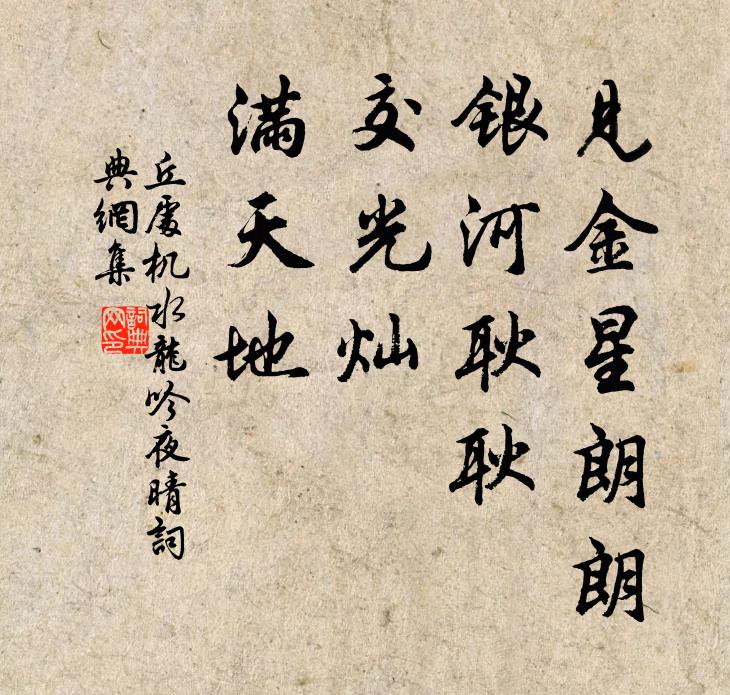 見金星朗朗
銀河耿耿
交光灿
滿天地
丘處机水龍吟夜晴詞
典網集
詞典
网印